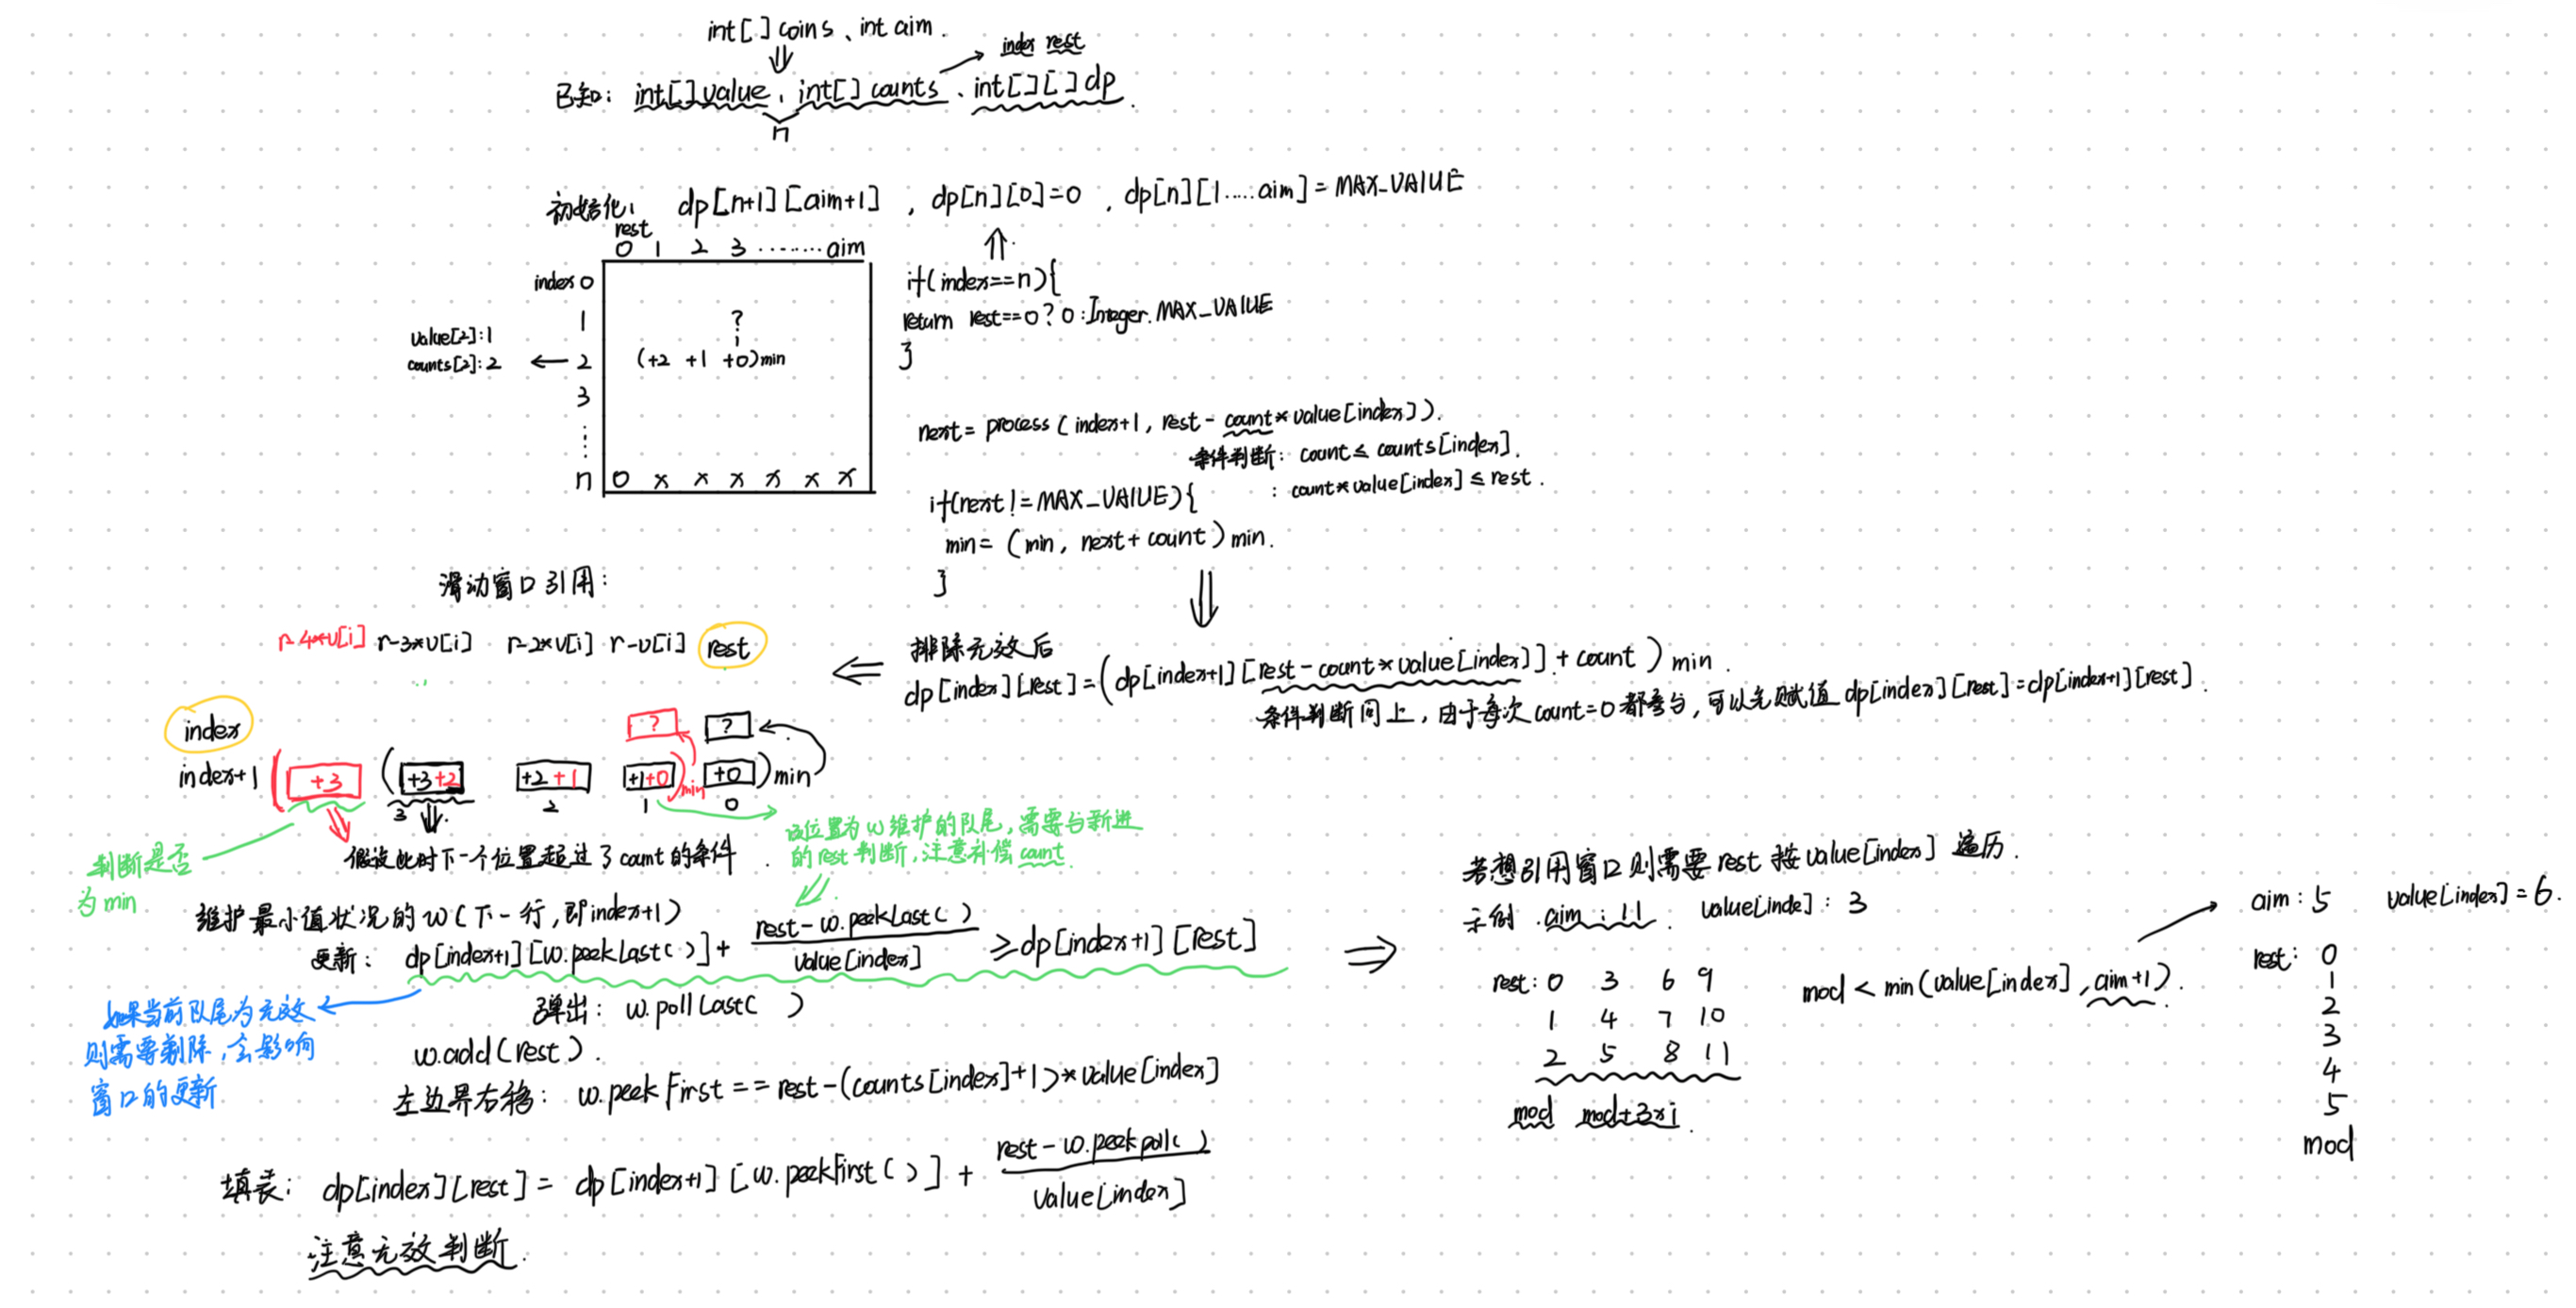 int[] coins、int aim.
index rest
已知: int[] value、int[] counts、int[][] dp.
n
初始化: dp[n+1][aim+1] , dp[n][0]=0 , dp[n][1.....aim]=MAX_VALUE
rest
0 1 2 3 ........ aim
index 0
1 ?
value[2]:1
counts[2]:2
2 (+2 +1 +0)min
3
n 0 x x x x x x
if(index==n){
return rest==0?0:Integer.MAX_VALUE
}
next=process(index+1, rest-count*value[index]).
条件判断: count≤counts[index].
: count*value[index]≤rest.
if(next!=MAX_VALUE){
min=(min, next+count)min.
}
排除无效后
dp[index][rest]=(dp[index+1][rest-count*value[index]]+count)min.
条件判断同上, 由于每次count=0都考台, 可以先赋值dp[index][rest]=dp[index+1][rest].
滑动窗口引用:
r-4*v[i] r-3*v[i] r-2*v[i] r-v[i] rest
index
? ?
index+1 ( +3 ( +3+2 +2+1 +1+0 )min +0 )min
3 2 1 0
判断是否
为min
假设此时下一个位置超过了count的条件.
该位置为w维护的队尾, 需要台新进
的rest判断, 注意补偿count.
维护最小值状况的w(下一行, 即index+1)
更新: dp[index+1][w.peekLast()]+ rest-w.peekLast() / value[index] ≥dp[index+1][rest]
如果当前队尾为无效
则需要剔除, 会影响
窗口的更新
弹出: w.pollLast( )
w.add(rest).
左边界右移: w.peekFirst==rest-(counts[index]+1)*value[index]
填表: dp[index][rest] = dp[index+1][w.peekFirst()] + rest-w.peekpoll() / value[index]
注意无效判断.
若想引用窗口则需要rest按value[index]遍历.
示例. aim:11. value[inde]:3
rest: 0 3 6 9
1 4 7 10
2 5 8 11
mod mod+3*i.
mod < min(value[index], aim+1).
aim:5 value[index]=6.
rest: 0
1
2
3
4
5
mod